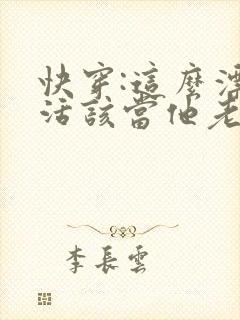 快穿:這麼漂
活該當他老
李長雲